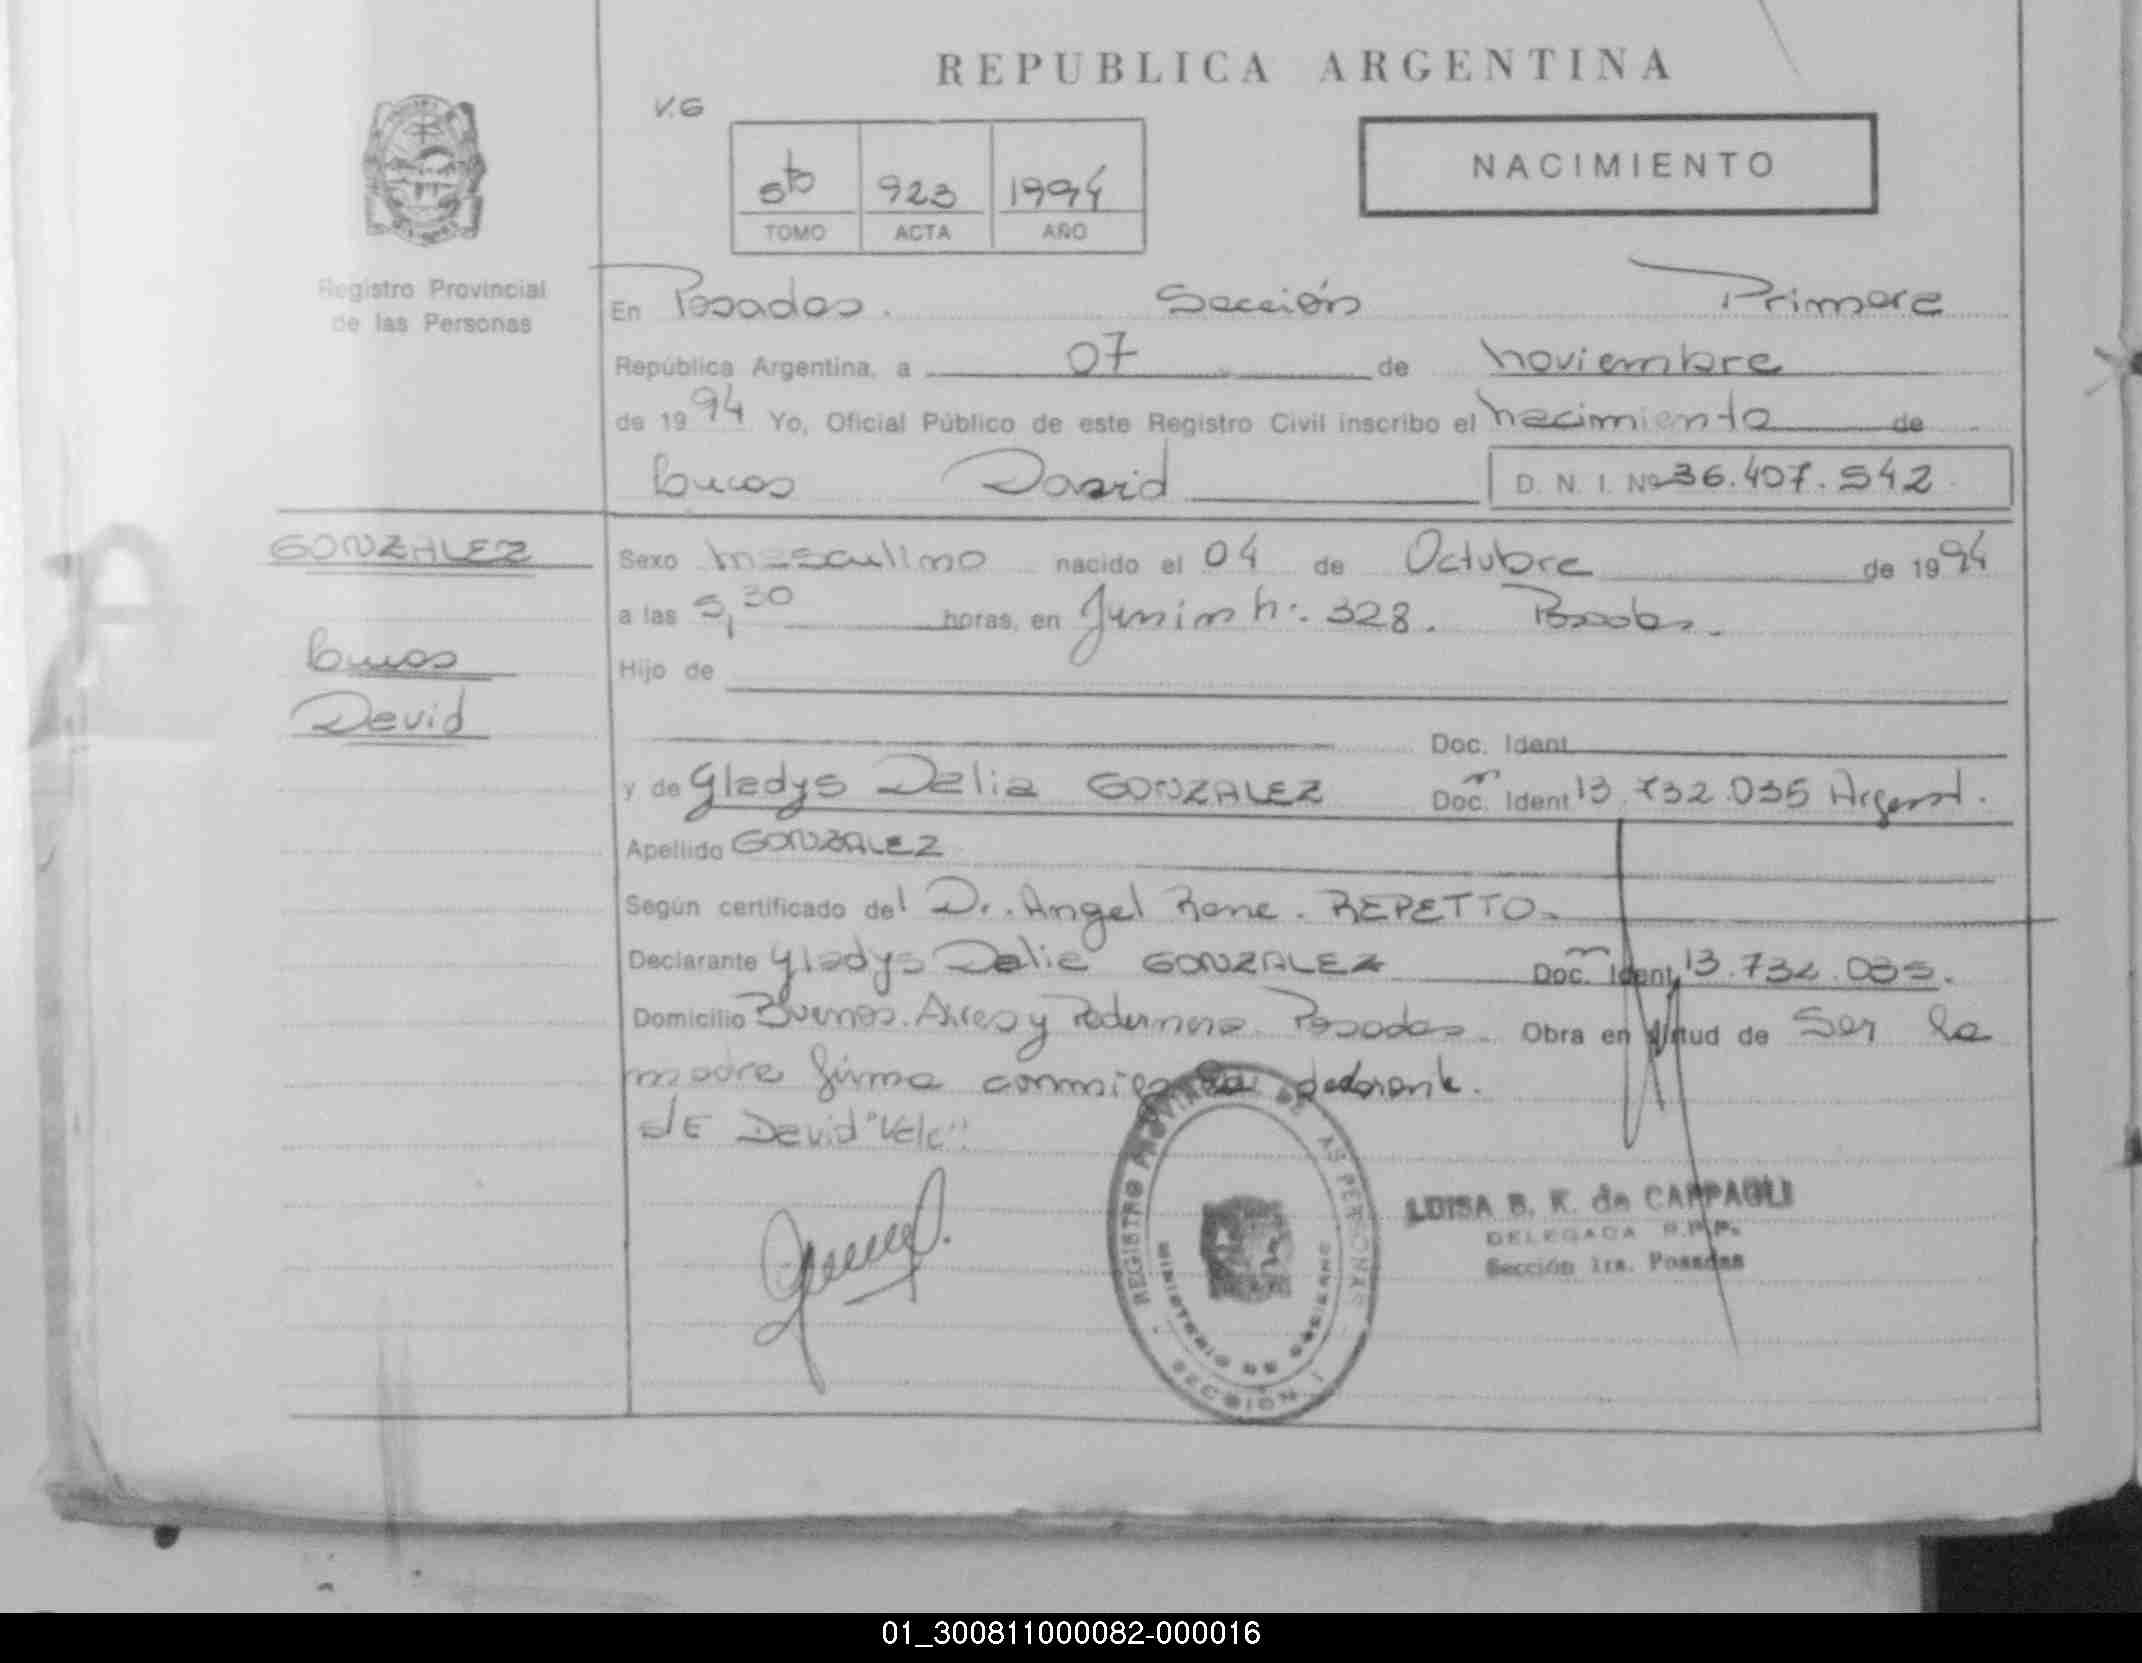 REPUBLICA ARGENTINA
V.G
5to 923 1994
TOMO ACTA AÑO
NACIMIENTO
Registro Provincial
de las Personas
En Posadas. Sección Primera
República Argentina, a 07 de noviembre
de 1994 Yo, Oficial Público de este Registro Civil inscribo el nacimiento de
Lucas David D. N. I. Nº 36.407.542
GONZALEZ
Lucas
David
Sexo masculino nacido el 04 de Octubre de 1994
a las 5,30 horas, en Junin n: 328. Posadas.
Hijo de
Doc. Ident
y de Gladys Delia GONZALEZ Doc. Ident 13.732.035 Argent.
Apellido GONZALEZ
Según certificado del Dr. Angel Rene. REPETTO.
Declarante Gladys Delia GONZALEZ Doc. Ident 13.732.035.
Domicilio Buenos. Aires y Pedernera Posadas. Obra en virtud de Ser la
madre firma conmigo la declarante.
s/E David "Vele".
REGISTRO PROVINCIAL DE LAS PERSONAS
MINISTERIO DE GOBIERNO
SECCION 1
LUISA B. K. de CAPPAGLI
DELEGADA R.P.P.
Sección 1ra. Posadas
01_300811000082-000016